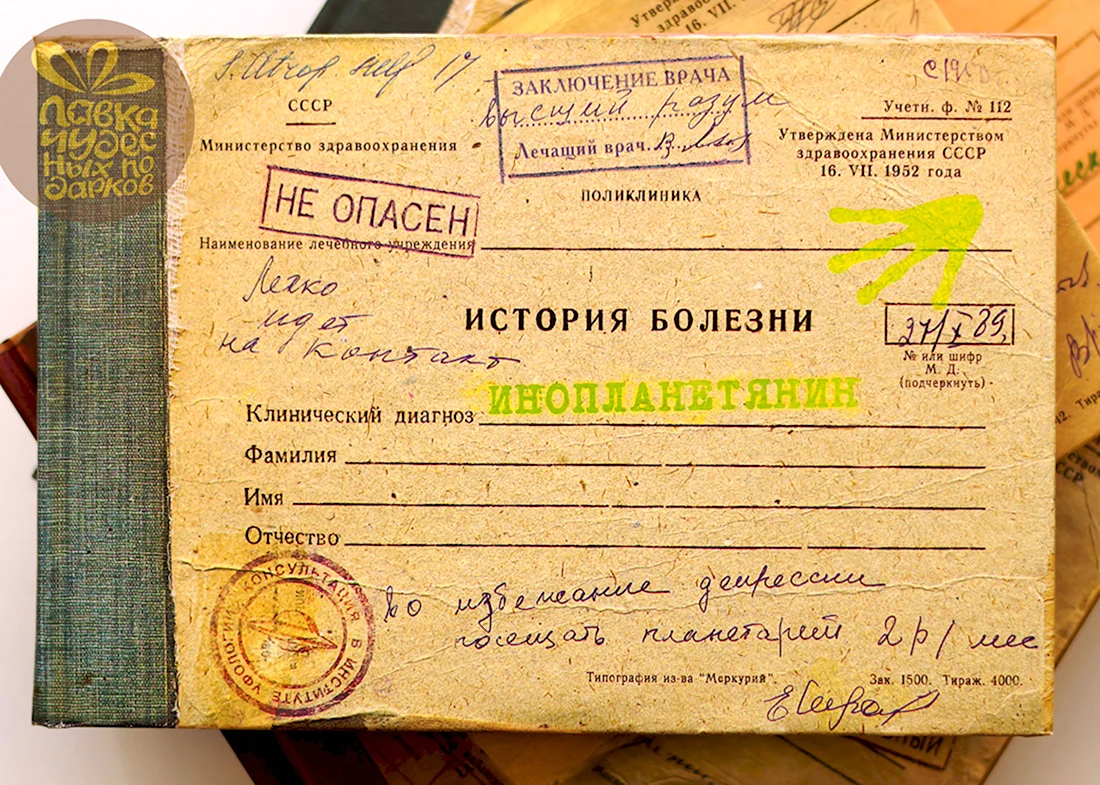 Лавка
чудес
ных по
дарков
СССР
Министерство здравоохранения
ЗАКЛЮЧЕНИЕ ВРАЧА
высший разум
Лечащий врач.
Учетн. ф. № 112
Утверждена Министерством
здравоохранения СССР
16. VII. 1952 года
ПОЛИКЛИНИКА
НЕ ОПАСЕН
Наименование лечебного учреждения
Легко
идет
на контакт
ИСТОРИЯ БОЛЕЗНИ
27/X 89
№ или шифр
М. Д.
(подчеркнуть)
Клинический диагноз ИНОПЛАНЕТЯНИН
Фамилия
Имя
Отчество
КОНСУЛЬТАЦИЯ В ИНСТИТУТЕ УФОЛОГИИ
Во избежание депрессии
посещать планетарий 2 р/мес
Типография из-ва "Меркурий".
Зак. 1500. Тираж. 4000.